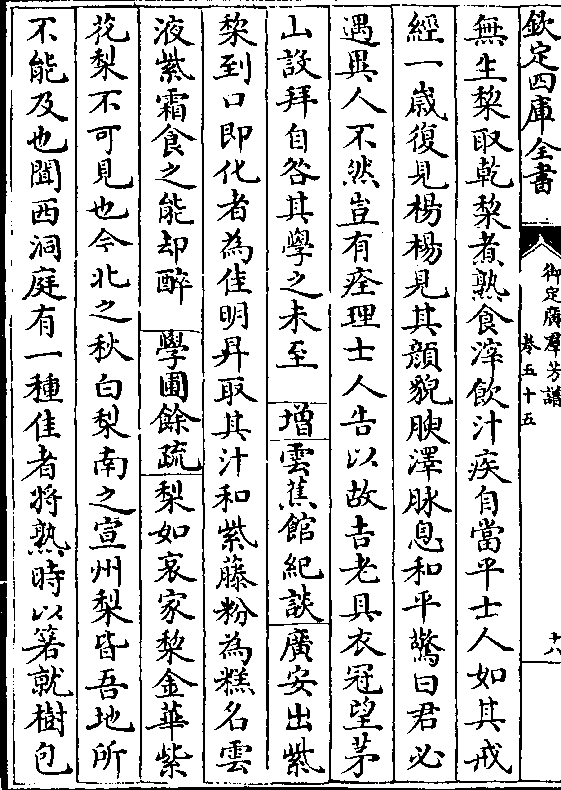 欽定四庫全書
御定廣羣芳譜
卷五十五
十八
無生棃取乾棃煮熟食滓飲汁疾自當平士人如其戒
經一歲復見楊楊見其顔貌腴澤脉息和平驚曰君必
遇異人不然豈有痊理士人告以故吉老具衣冠望茅
山設拜自咎其學之未至 增雲蕉館紀談 廣安出紫
棃到口即化者為佳明昇取其汁和紫藤粉為糕名雲
液紫霜食之能却醉 學圃餘疏 梨如哀家棃金華紫
花梨不可見也今北之秋白梨南之宣州梨皆吾地所
不能及也聞西洞庭有一種佳者將熟時以箬就樹包